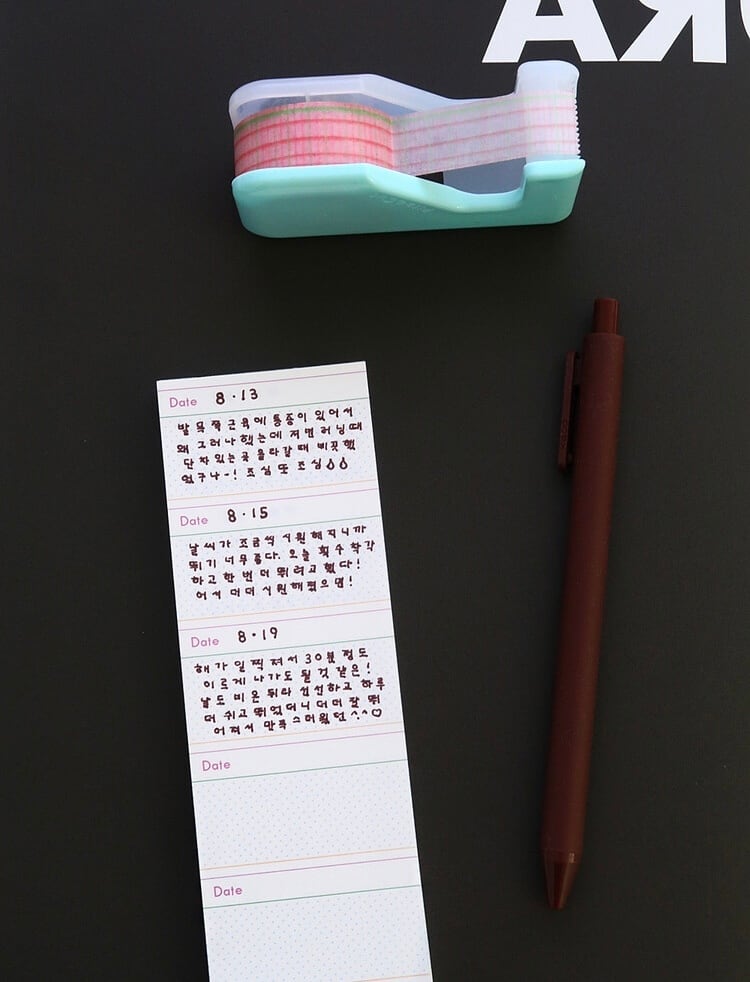 RA
Date 8.13
발목쪽근육에 통증이 있어서
왜 그러나했는데 저번러닝때
단차있는곳 올라갈때 삐끗했
었구나-! 조심 또 조심
Date 8.15
날씨가 조금씩 시원해지니까
뛰기 너무좋다. 오늘 횟수착각
하고 한번더 뛰려고했다!
어서 더더 시원해졌으면!
Date 8.19
해가 일찍 져서 30분정도
이르게 나가도 될것 같은!
날도 비온 뒤라 선선하고 하루
더 쉬고 뛰었더니 더더 잘 뛰
어져서 만족스러웠던^.^♡
Date
Date